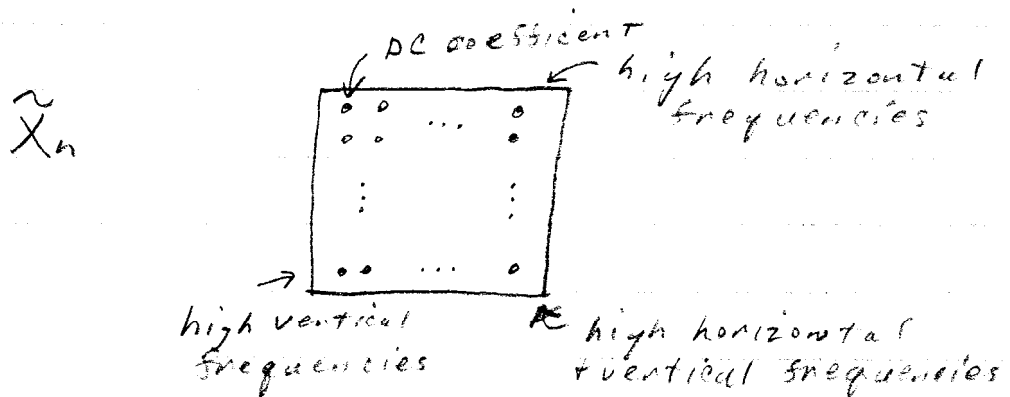 DC coefficient
high horizontal
frequencies
X̃ₙ
...
...
high vertical
frequencies
high horizontal
+ vertical frequencies